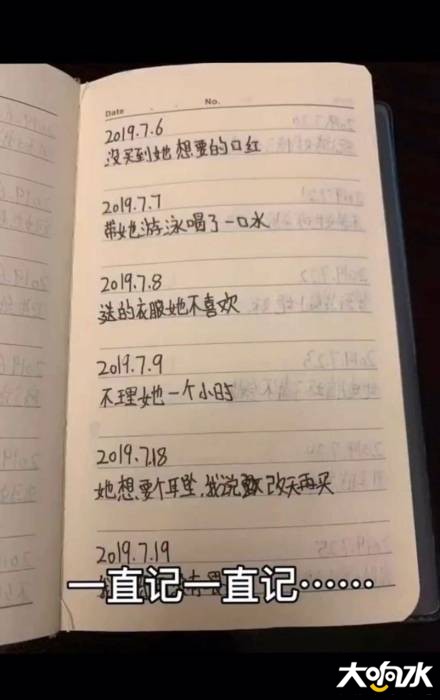 Date No.
2019.7.6
没买到她想要的口红
2019.7.7
带她游泳喝了一口水
2019.7.8
送的衣服她不喜欢
2019.7.9
不理她一个小时
2019.7.18
她想要个耳坠,我说改天再买
2019.7.19
一直记一直记……
大响水